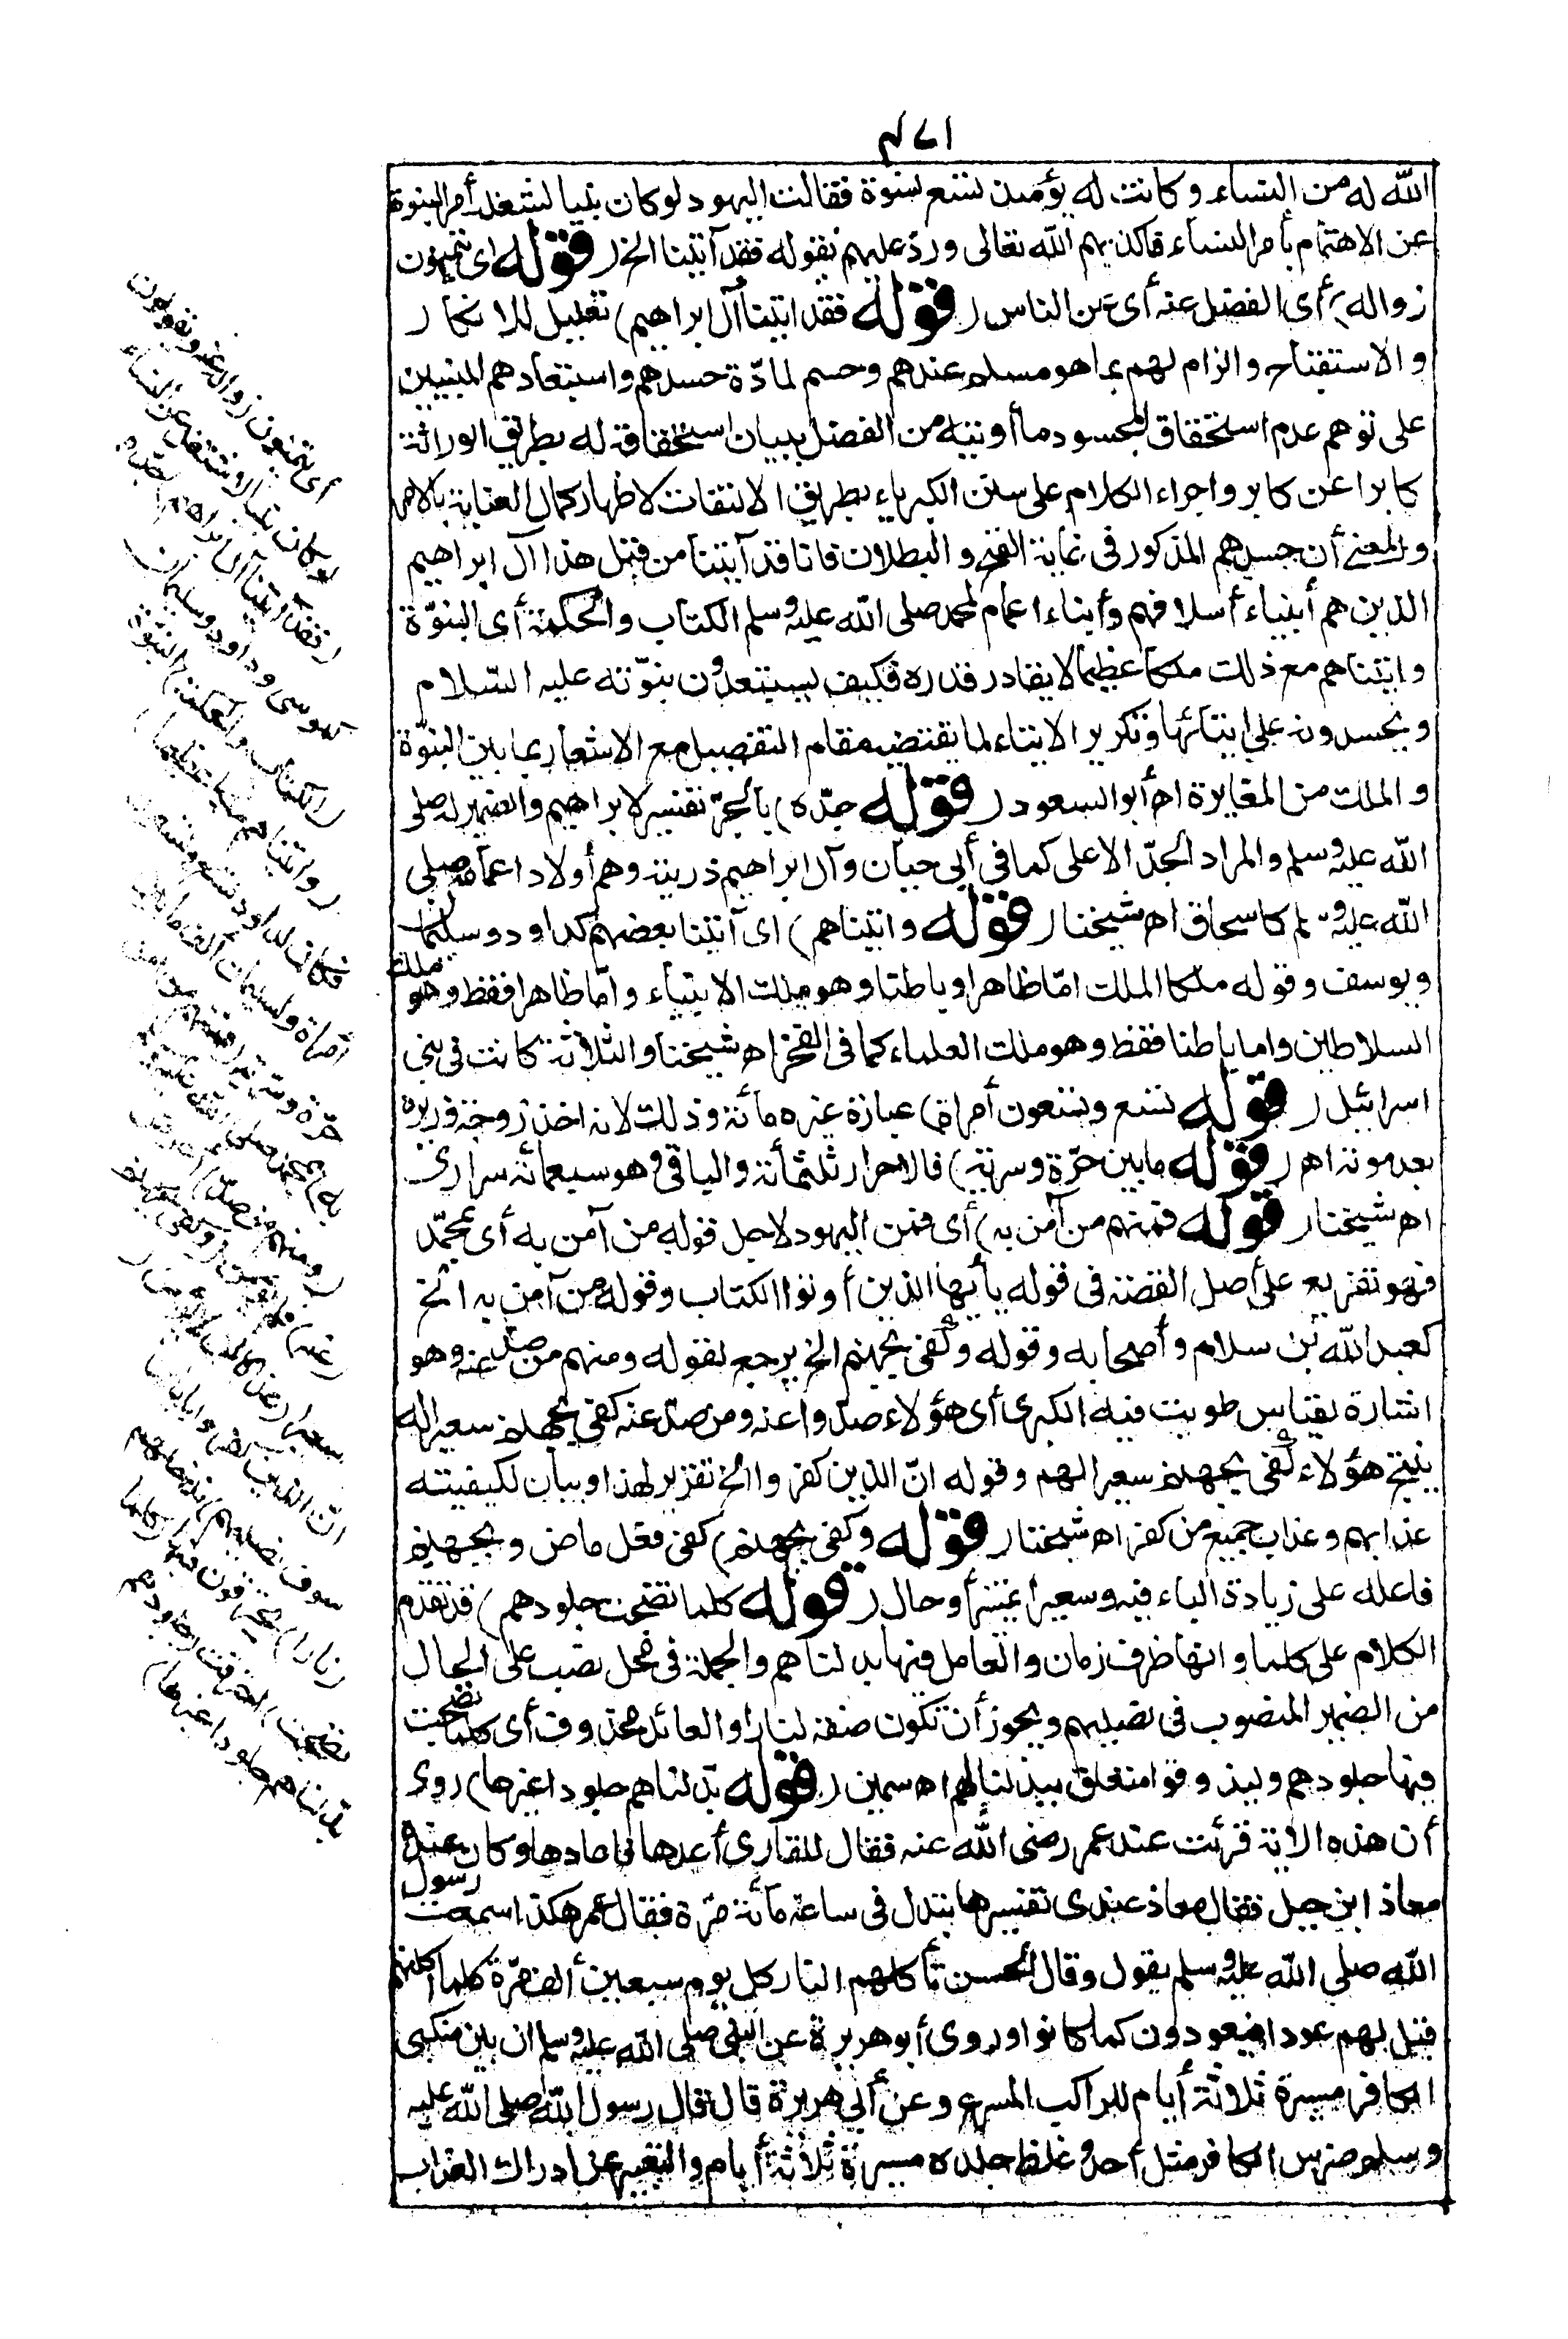 الله له من النساء وكانت له يؤمئذ تسع نسوة فقالت اليهود لو كان نبيا لشغله أمر النبوة
عن الاهتمام بأمر النساء فاكذبهم الله تعالى ورد عليهم بقوله فقد آتينا الخ (قوله اى يتمنون
زواله) أى الفضل عنه أى عن الناس (قوله فقد اتينا آل ابراهيم) تعليل للانكار
والاستقباح والزام لهم بما هو مسلم عندهم وحسم لمادّة حسدهم واستبعادهم المبنيين
على توهم عدم استحقاق المحسود ما أوتيه من الفضل ببيان استحقاقه له بطريق الوراثة
كابرا عن كابر واجراء الكلام على سنن الكبرياء بطريق الالتفات لاظهار كمال العناية بالامر
والمعنى أن حسدهم المذكور فى غاية القبح والبطلان فانا قد آتينا من قبل هذا آل ابراهيم
الذين هم أنبياء أسلافهم وأبناء اعمام محمد صلى الله عليه وسلم الكتاب والحكمة أى النبوّة
واتيناهم مع ذلك ملكا عظيما لا يقادر قدره فكيف يستبعدون نبوّته عليه السّلام
ويحسدونه على ايتائها وتكرير الايتاء لما يقتضيه مقام التفصيل مع الاشعار بما بين النبوّة
والملك من المغايرة اه أبو السعود (قوله جدّه) بالجرّ تفسير لابراهيم والضمير له صلى
الله عليه وسلم والمراد الجدّ الاعلى كما فى أبى حيان وآل ابراهيم ذريته وهم أولاد اعمامه صلى
الله عليه وسلم كاسحاق اه شيخنا (قوله واتيناهم) اى آتينا بعضهم كداود وسليمان
ويوسف وقوله ملكا الملك امّا ظاهرا وباطنا وهو ملك الانبياء وامّا ظاهرا فقط وهو ملك
السلاطين واما باطنا فقط وهو ملك العلماء كما فى الفخر اه شيخنا والثلاثة كانت فى بنى
اسرائيل (قوله تسع وتسعون أمرأة) عبارة غيره مائة وذلك لانه اخذ زوجة وزيره
بعد موته اه (قوله ما بين حرّة وسرية) فالاحرار ثلثمائة والباقى وهو سبعمائة سرارى
اه شيخنا (قوله فمنهم من آمن به) أى فمن اليهود لاجل قوله من آمن به أى بمحمّد
فهو تفريع على أصل القصة فى قوله يأيها الذين أوتوا الكتاب وقوله من آمن به الخ
كعبد الله بن سلام وأصحابه وقوله وكفى بجهنم الخ يرجع لقوله ومنهم من صدّ عنه وهو
اشارة لقياس طويت فيه الكبرى أى هؤلاء صدّوا عنه ومن صدّ عنه كفى بجهنم سعيرا له
ينتج هؤلاء كفى بجهنم سعيرا لهم وقوله انّ الذين كفروا الخ تقرير لهذا وبيان لكيفيته
عذابهم وعذاب جميع من كفر اه شيخنا (قوله وكفى بجهنم) كفى فعل ماض وبجهنم
فاعله على زيادة الباء فيه وسعيرا تمييز أو حال (قوله كلما نضجت جلودهم) قد تقدم
الكلام على كلما وانها ظرف زمان والعامل فيها بدلناهم والجملة فى محل نصب على الحال
من الضمير المنصوب فى نصليهم ويجوز أن تكون صفة لنارا والعائد محذوف أى كلما نضجت
فيها جلودهم وليذوقوا متعلق ببدلناهم اه سمين (قوله بدّلناهم جلودا غيرها) روى
أن هذه الاية قرئت عند عمر رضى الله عنه فقال للقارى أعدها فاعادها وكان عنده
معاذ ابن جبل فقال معاذ عندى تفسيرها تبدل فى ساعة مائة مرّة فقال عمر هكذا سمعت رسول
الله صلى الله عليه وسلم يقول وقال الحسن تأكلهم النار كل يوم سبعين ألف مرّة كلما أكلتهم
قيل لهم عودوا فيعودون كما كانوا وروى أبو هريرة عن النبى صلى الله عليه وسلم ان بين منكبى
الكافر مسيرة ثلاثة أيام للراكب المسرع وعن أبى هريرة قال قال رسول الله صلى الله عليه
وسلم ضرس الكافر مثل أحد وغلظ جلده مسيرة ثلاثة أيام والتعبير عن ادراك العذاب
أى يتمنون زواله عنه ويقولون
لو كان نبيا لاشتغل عن النساء
(فقد آتينا آل ابراهيم) جدّه
كموسى وداود وسليمان
(الكتاب والحكمة) النبوّة
(واتيناهم ملكا عظيما)
فكان لداود تسع وتسعون
أمرأة ولسليمان ألف ما بين
حرّة وسرية (فمنهم من آمن
به) بمحمد صلى الله عليه وسلم
(ومنهم من صدّ) اعرض
(عنه) فلم يؤمن (وكفى بجهنم
سعيرا)
انّ الذين كفروا باياتنا
سوف نصليهم) ندخلهم
(نارا) يحترقون فيها (كلما
نضجت) احترقت (جلودهم
بدلناهم جلودا غيرها)